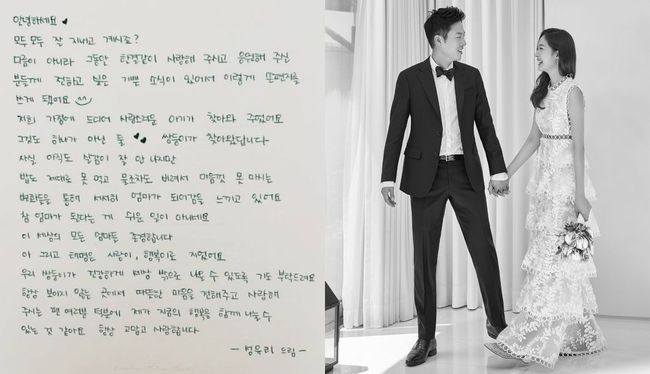 안녕하세요 ♥
모두모두 잘 지내고 계시죠?
다름이 아니라 그동안 한결같이 사랑해 주시고 응원해 주신
분들께 전하고 싶은 기쁜 소식이 있어서 이렇게 손편지를
쓰게 됐어요
저희 가정에 드디어 사랑스러운 아기가 찾아와 주었어요
그것도 하나가 아닌 둘 ♥♥ 쌍둥이가 찾아왔답니다
사실 아직도 실감이 잘 안 나지만
밥도 제대로 못 먹고 물조차도 비려서 마음껏 못 마시는
변화들을 통해 서서히 엄마가 되어감을 느끼고 있어요
참 엄마가 된다는 게 쉬운 일이 아니네요
이 세상의 모든 엄마들 존경합니다
아 그리고 태명은 사랑이, 행복이로 지었어요
우리 쌍둥이가 건강하게 세상 밖으로 나올 수 있도록 기도 부탁드려요
항상 보이지 않는 곳에서 따뜻한 마음을 전해주고 사랑해
주시는 팬 여러분 덕분에 제가 지금의 행복을 함께 나눌 수
있는 것 같아요 항상 고맙고 사랑합니다
- 성유리 드림 -